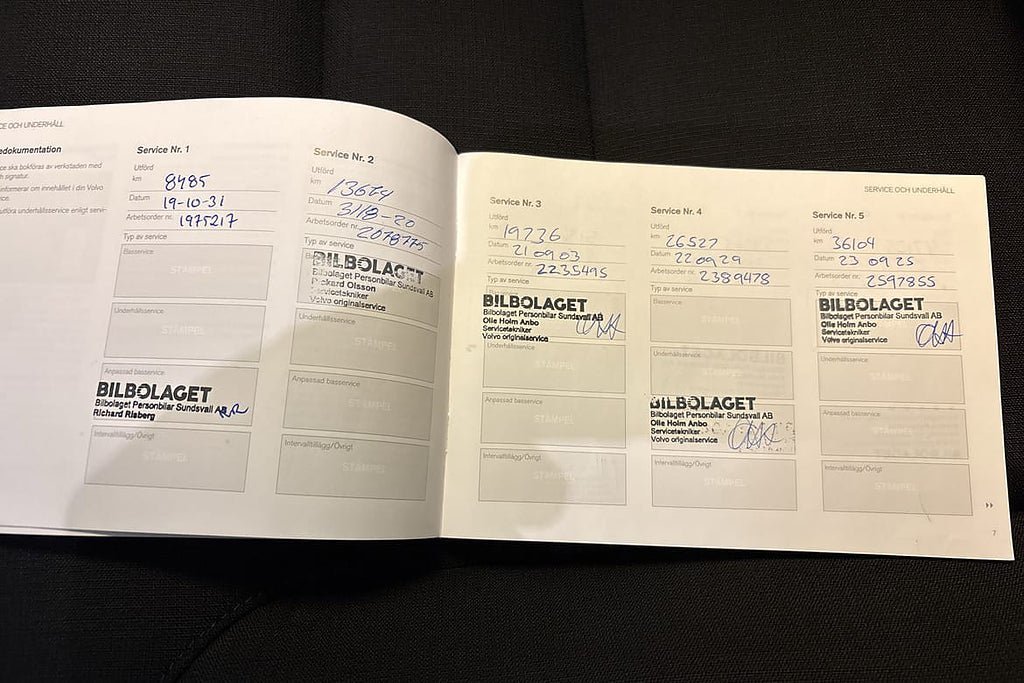 CE OCH UNDERHÅLL
edokumentation
ce ska bokföras av verkstaden med
h signatur.
informerar om innehållet i din Volvo
utföra underhållsservice enligt servi-
Service Nr. 1
Utförd
km 8485
Datum 19-10-31
Arbetsorder nr. 1975217
Typ av service
Basservice
STÄMPEL
Underhållsservice
STÄMPEL
Anpassad basservice
BILBOLAGET
Bilbolaget Personbilar Sundsvall AB
Richard Risberg
Intervalltillägg/Övrigt
STÄMPEL
Service Nr. 2
Utförd
km
Datum 31/8-20
Arbetsorder nr. 2078775
Typ av service
BILBOLAGET
Bilbolaget Personbilar Sundsvall AB
Rickard Olsson
Servicetekniker
Volvo originalservice
Underhållsservice
STÄMPEL
Anpassad basservice
STÄMPEL
Intervalltillägg/Övrigt
STÄMPEL
SERVICE OCH UNDERHÅLL
Service Nr. 3
Utförd
km 19736
Datum 210903
Arbetsorder nr. 2235495
Typ av service
BILBOLAGET
Bilbolaget Personbilar Sundsvall AB
Olle Holm Anbo
Servicetekniker
Volvo originalservice
Underhållsservice
STÄMPEL
Anpassad basservice
STÄMPEL
Intervalltillägg/Övrigt
STÄMPEL
Service Nr. 4
Utförd
km 26527
Datum 220929
Arbetsorder nr. 2389478
Typ av service
Basservice
STÄMPEL
Underhållsservice
STÄMPEL
BILBOLAGET
Bilbolaget Personbilar Sundsvall AB
Olle Holm Anbo
Servicetekniker
Volvo originalservice
Intervalltillägg/Övrigt
STÄMPEL
Service Nr. 5
Utförd
km 36104
Datum 23 09 25
Arbetsorder nr. 2597855
Typ av service
BILBOLAGET
Bilbolaget Personbilar Sundsvall AB
Olle Holm Anbo
Servicetekniker
Volvo originalservice
Underhållsservice
STÄMPEL
Anpassad basservice
STÄMPEL
Intervalltillägg/Övrigt
STÄMPEL
7